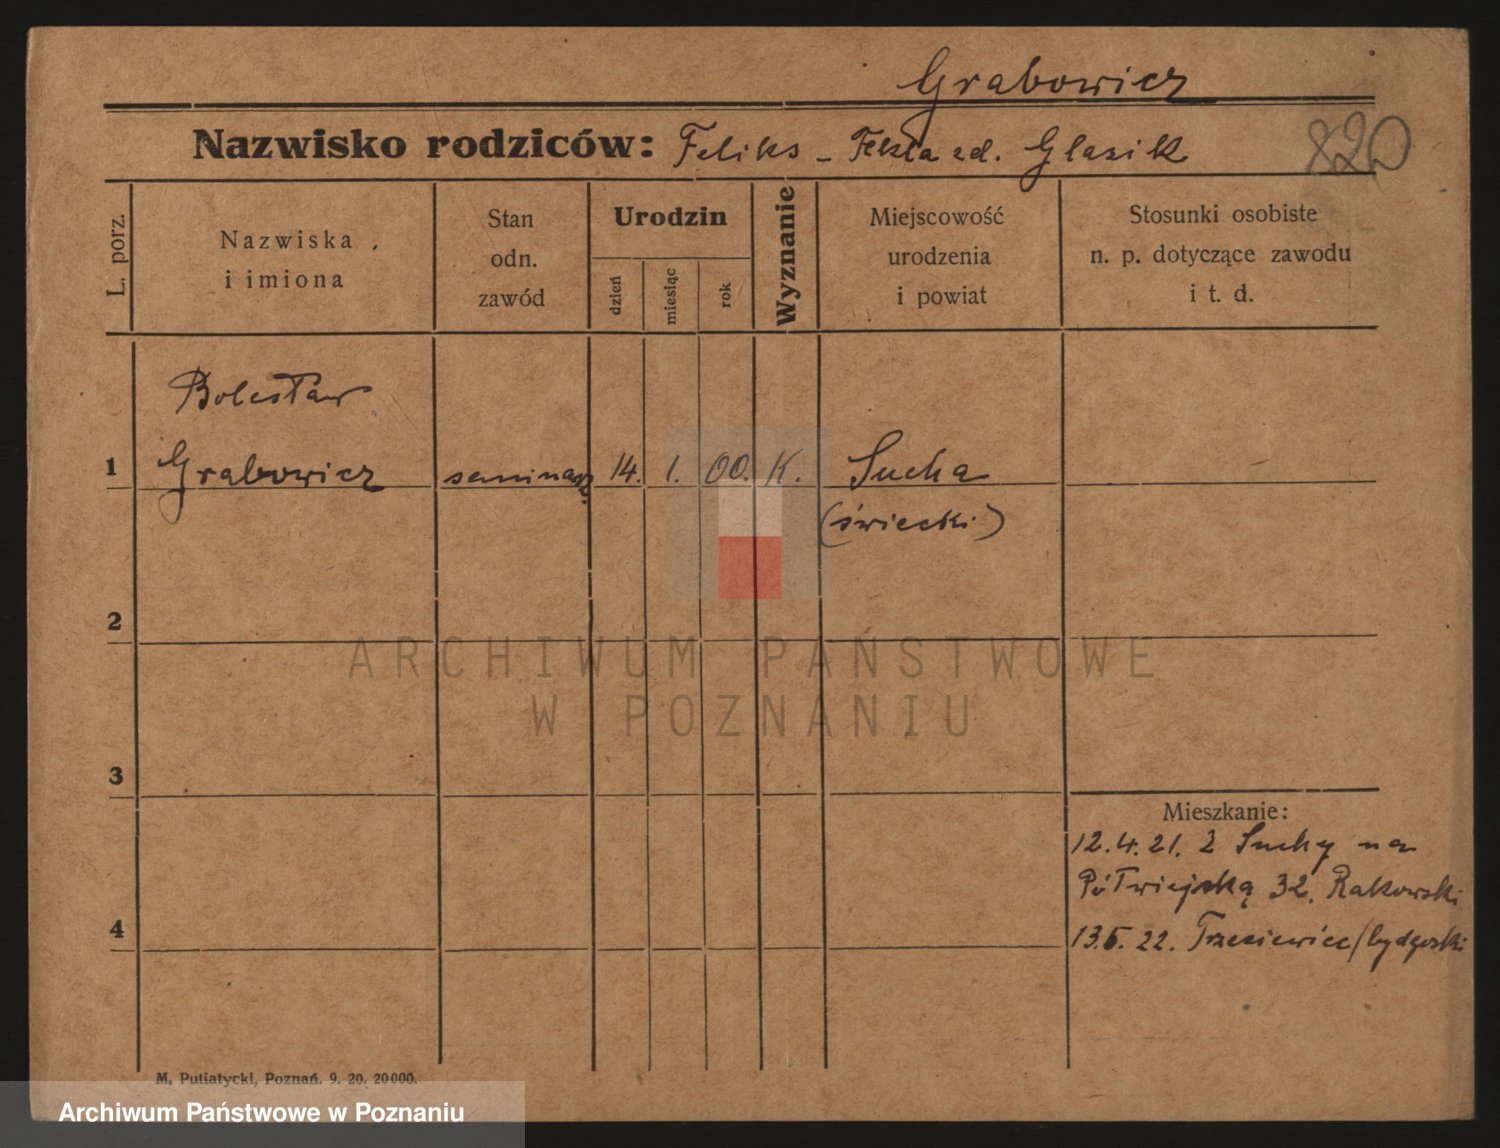 Grabowicz
Nazwisko rodziców: Feliks - Tekla zd. Glazik
820
L. porz.
Nazwiska
i imiona
Stan
odn.
zawód
Urodzin
dzień
miesiąc
rok
Wyznanie
Miejscowość
urodzenia
i powiat
Stosunki osobiste
n. p. dotyczące zawodu
i t. d.
Bolesław
1 Grabowicz seminarz. 14. 1. 00. K. Sucha
(świecki)
2
ARCHIWUM PAŃSTWOWE
W POZNANIU
3
Mieszkanie:
12.4.21. Z Suchy na
Półwiejską 32. Rakowski
4
13.5.22. Trzeciewiec/bydgoski
M. Putiatycki, Poznań. 9. 20. 20000.
Archiwum Państwowe w Poznaniu